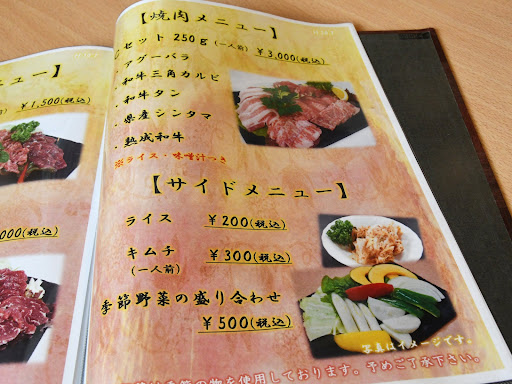 ニュー】
¥1,500(税込)
000(税込)
【焼肉メニュー】
Cセット 250g(一人前) ¥3,000(税込)
・アグーバラ
・和牛三角カルビ
・和牛タン
・県産シンタマ
・熟成和牛
※ライス・味噌汁つき
【サイドメニュー】
ライス ¥200(税込)
キムチ ¥300(税込)
(一人前)
季節野菜の盛り合わせ
¥500(税込)
写真はイメージです。
季節の物を使用しております。予めご了承下さい。